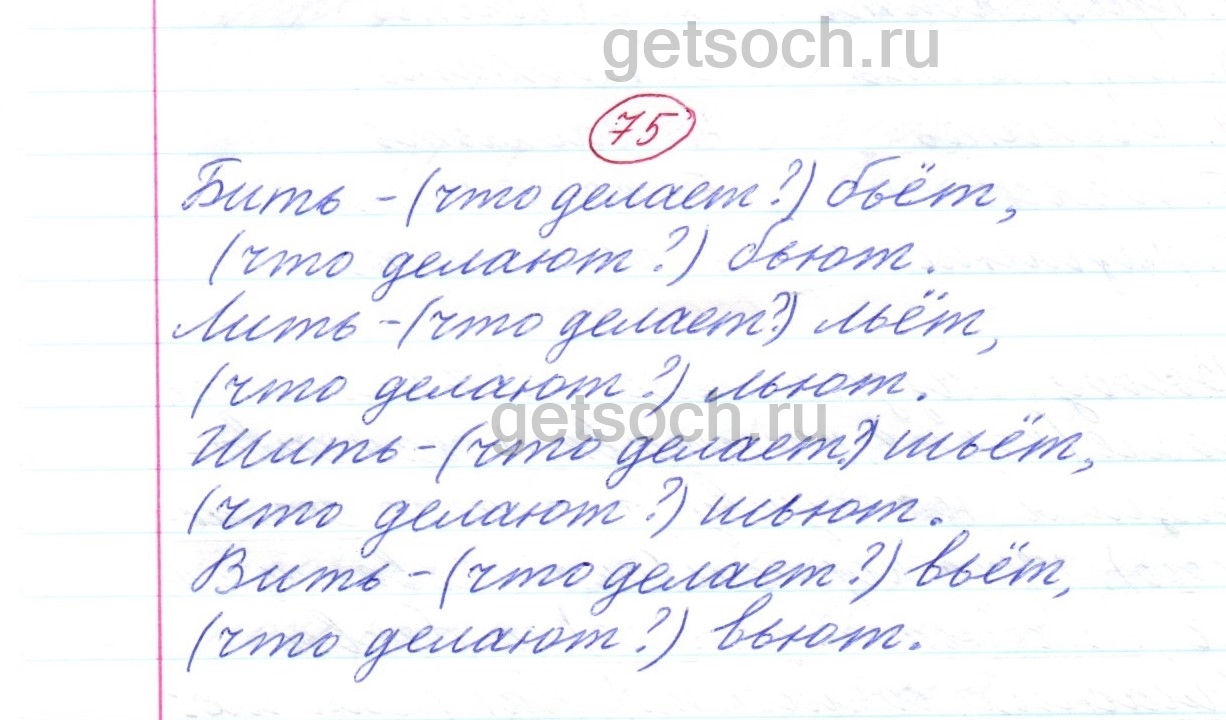 getsoch.ru
75
Бить - (что делает?) бьёт,
(что делают?) бьют.
Лить - (что делает?) льёт,
(что делают?) льют.
getsoch.ru
Шить - (что делает?) шьёт,
(что делают?) шьют.
Вить - (что делает?) вьёт,
(что делают?) вьют.